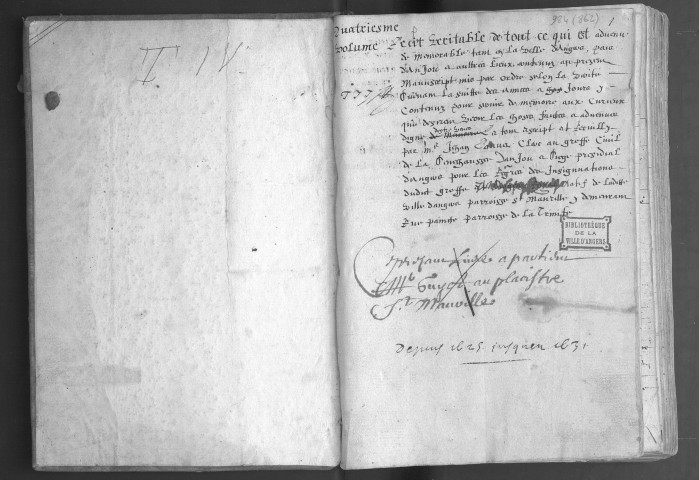 T. IV.
984 (862)
1
quatriesme
volume Recit veritable de tout ce qui est advenu
de memorable tant en la ville d'angers, pais
d'anjou & aultres lieux contenuz au present
Manuscript mis par ordre selon la verité
suivant la suitte des années & jours y
contenuz pour servir de memoire aux curieux
qui desirent les choses advenues
digne de memoire a tout escript et recuilly
par Me Jehan Louvet Clerc au greffe Civil
de la Senechaussee d'anjou & siege presidial
d'angers pour les des Insignuations
dudit greffe natif de ladite
ville d'angers parroisse St Maurille y demeurant
Rue parroisse de la Trinité
BIBLIOTHÈQUE
DE LA
VILLE D'ANGERS
Ce present livre apartient
a Mr Guyet au placistre
St Maurille
Depuis 1625 jusqu'en 1631